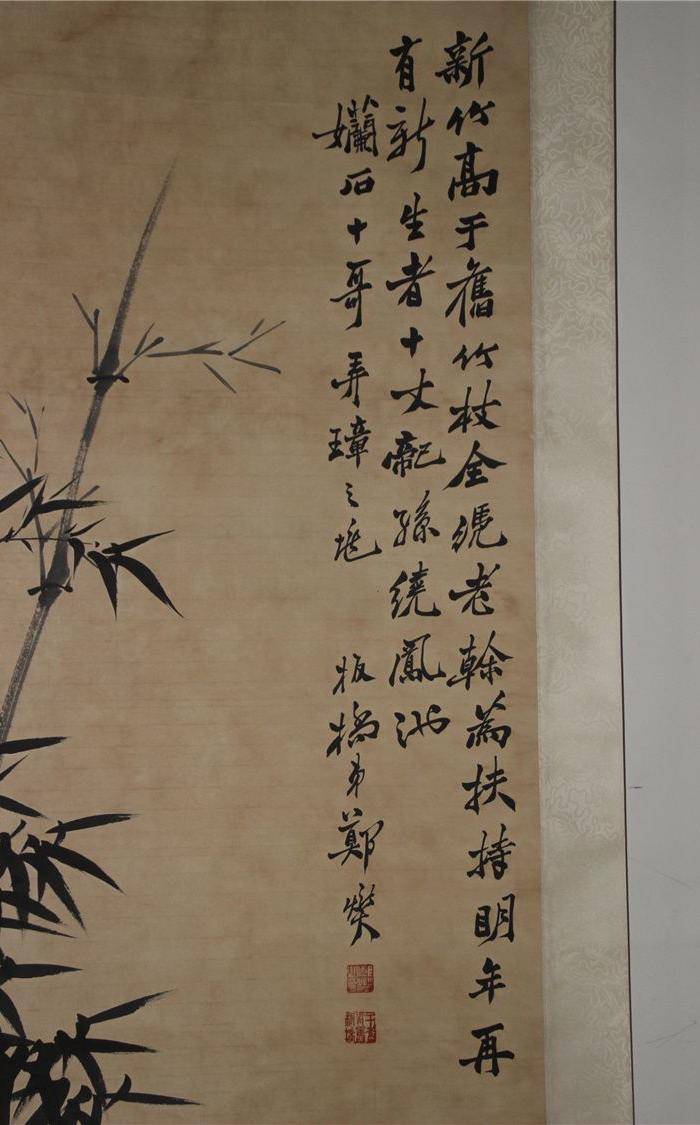 新竹高于舊竹枝全凴老榦為扶持明年再
有新生者十丈龍孫繞鳳池
孏石十哥弄璋之 板橋弟鄭燮